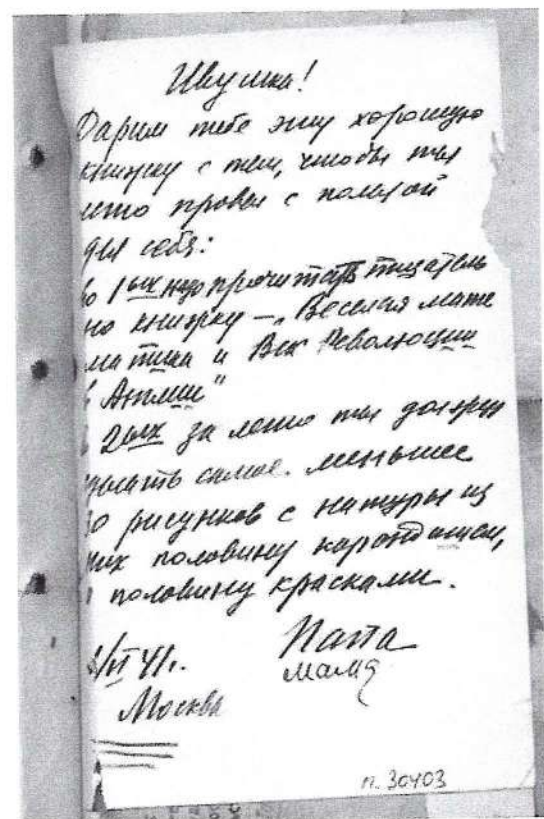 Ивушка!
Дарим тебе эту хорошую
книжку с тем, чтобы ты
лето провел с пользой
для себя:
во 1ых надо прочитать тщатель
но книжку — „Веселая мате
матика и Век Революции
в Англии"
в 2ых за лето ты должен
сделать самое меньшее
рисунков с натуры из
них половину карандашом,
половину красками.
/VI 41г. Папа
мама
Москва
п. 30403